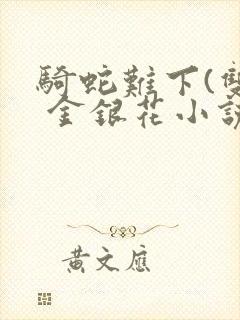 騎蛇難下(雙
金銀花小說
黃文應